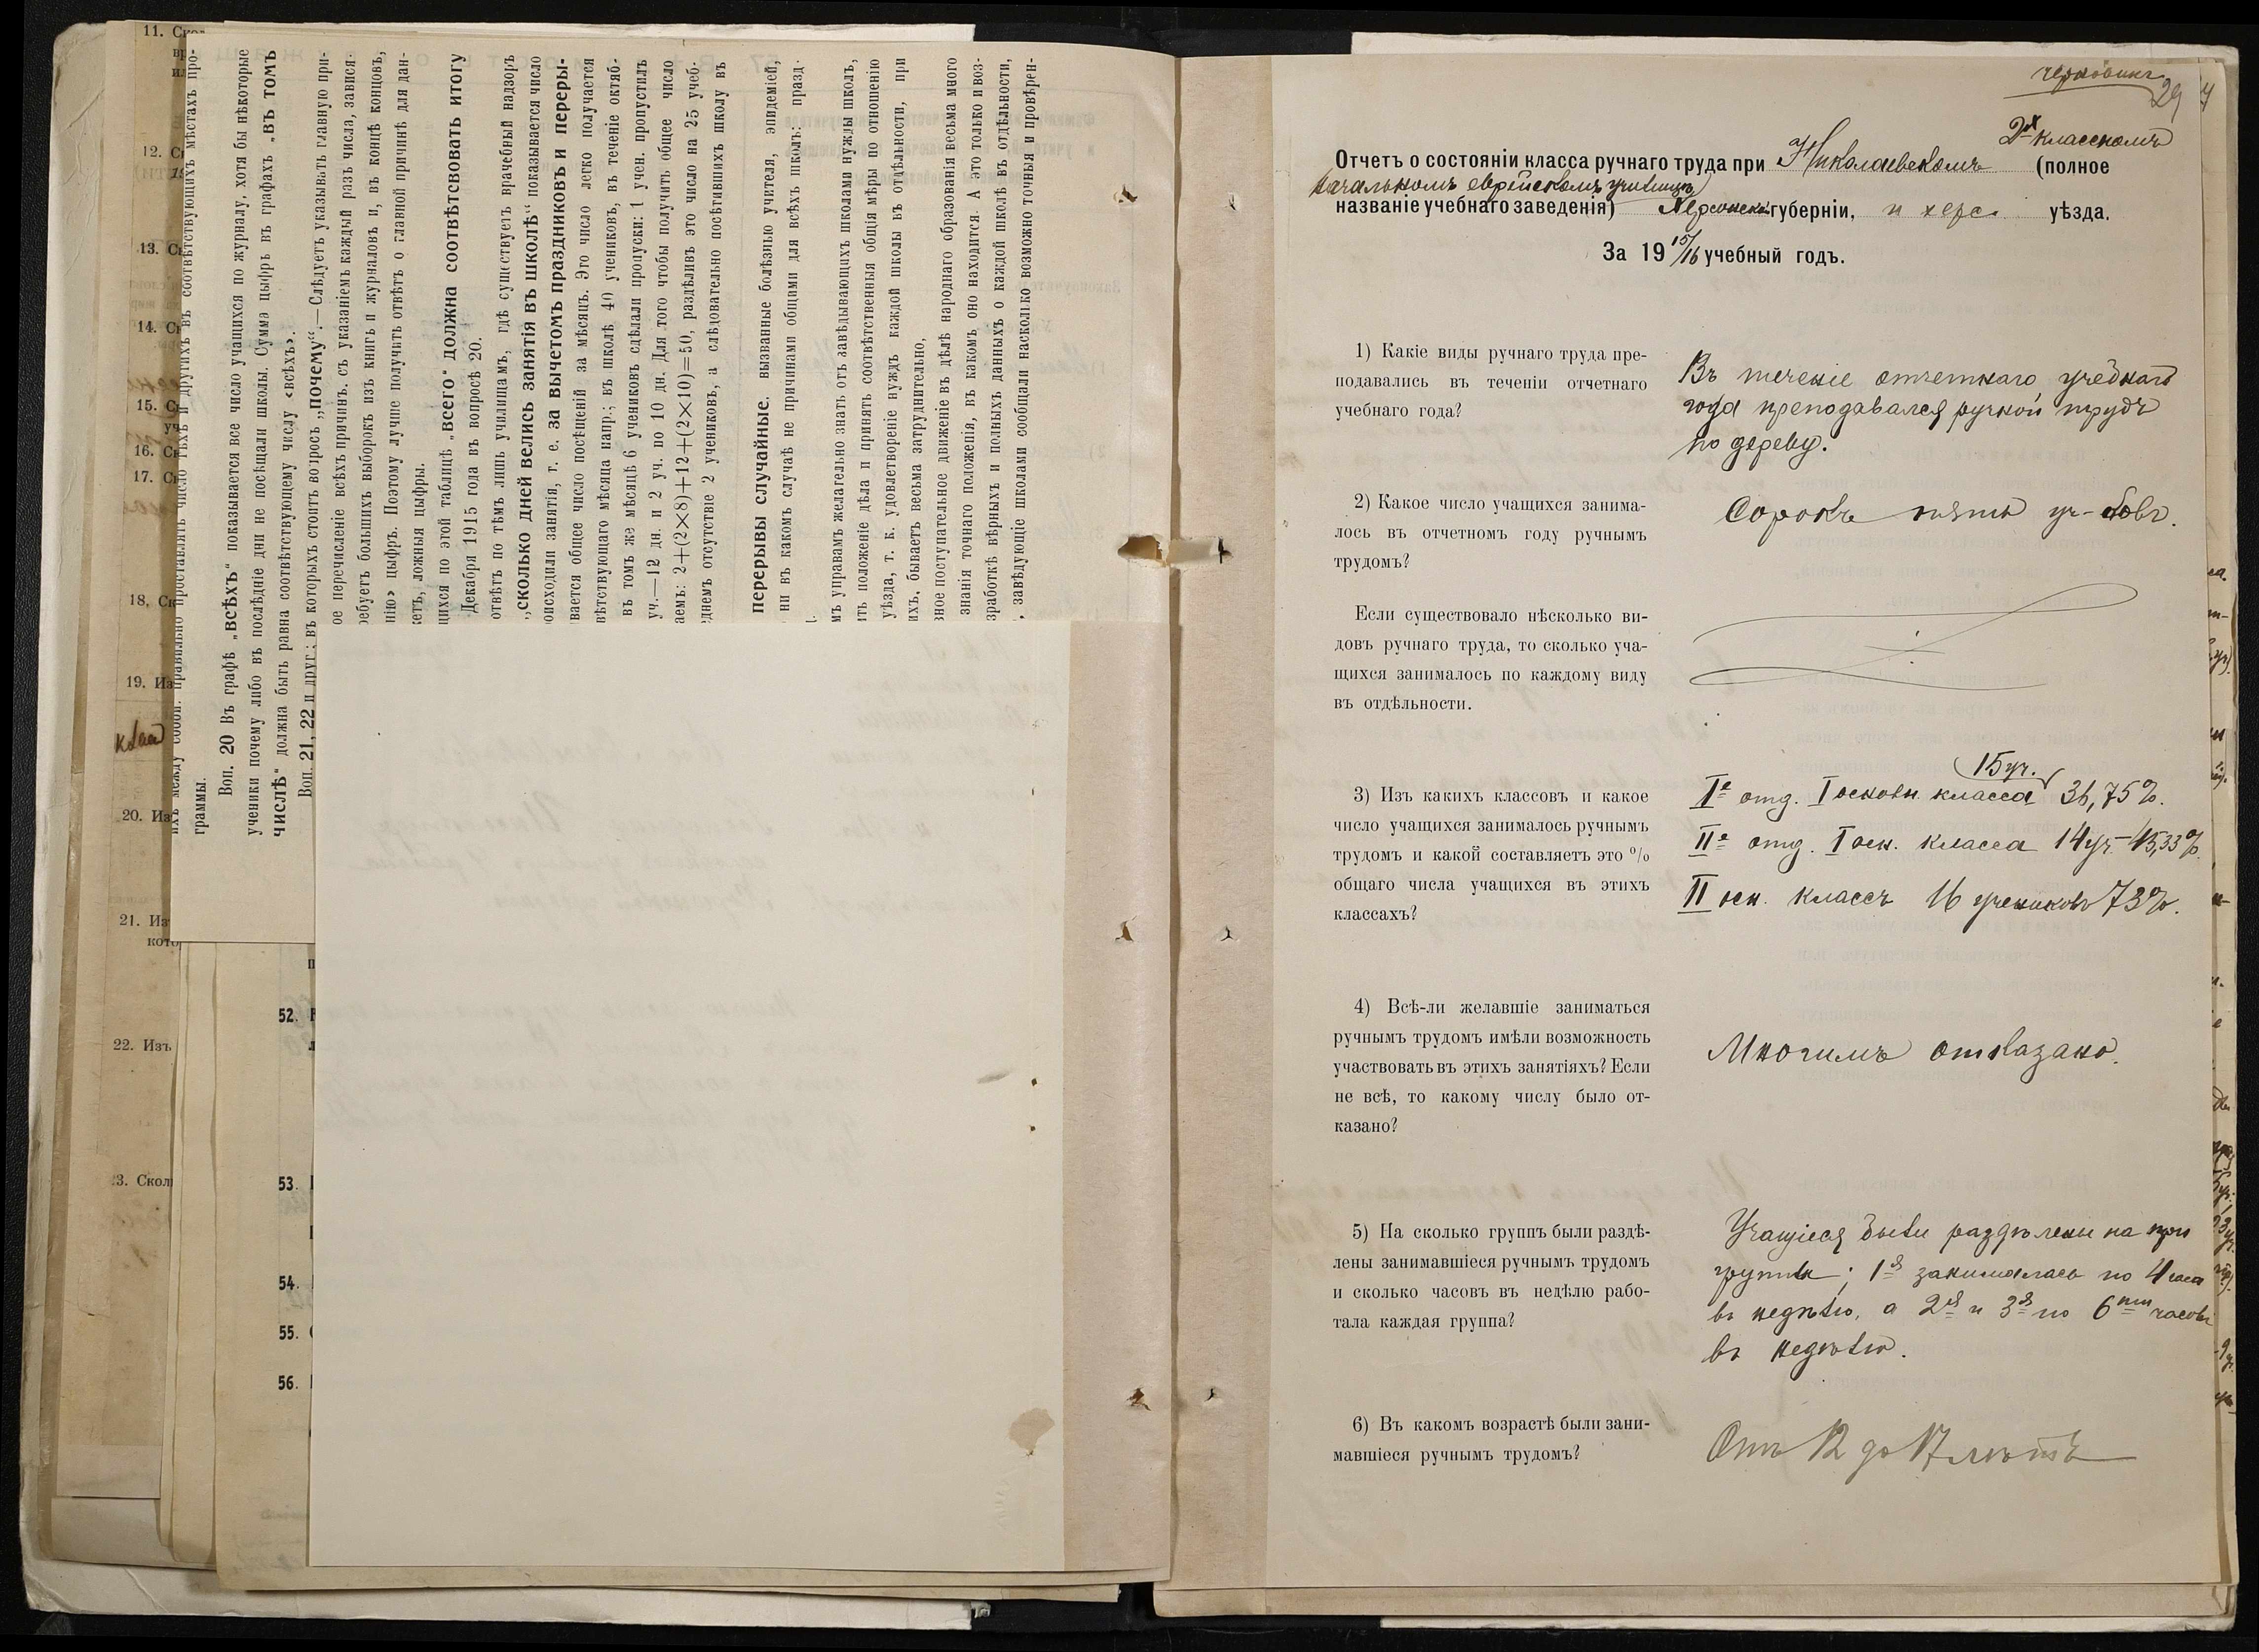 11. Ск
12. С
13. С
14. С
15. С
уч
16. С
17. С
18. Ск
19. Из
20. Из
21. Из
кото
22. Изъ
23. Скол
ихъ между собой. правильно проставлять число тѣхъ и другихъ въ соотвѣтствующихъ мѣстахъ про-
граммы.
Воп. 20 Въ графѣ „всѣхъ“ показывается все число учащихся по журналу, хотя бы нѣкоторые
ученики почему либо въ послѣдніе дни не посѣщали школы. Сумма цыфръ въ графахъ „въ томъ
числѣ“ должна быть равна соотвѣтствующему числу «всѣхъ».
Воп. 21, 22 и друг.; въ которыхъ стоитъ вопросъ „почему“.—Слѣдуетъ указывать главную при-
ое перечисленіе всѣхъ причинъ. съ указаніемъ каждый разъ числа, завися-
ребуетъ большихъ выборокъ изъ книгъ и журналовъ и, въ концѣ концовъ,
нію» цыфръ. Поэтому лучше получить отвѣтъ о главной причинѣ для дан-
жетъ, ложныя цыфры.
щихся по этой таблицѣ „всего“ должна соотвѣтсвовать итогу
Декабря 1915 года въ вопросѣ 20.
отвѣтъ по тѣмъ лишь училищамъ, гдѣ существуетъ врачебный надзоръ
„сколько дней велись занятія въ школѣ“ показывается число
оисходили занятія, т. е. за вычетомъ праздниковъ и переры-
вается общее число посѣщеній за мѣсяцъ. Это число легко получается
вѣтствующаго мѣсяца напр.; въ школѣ 40 учениковъ, въ теченіе октяб-
въ томъ же мѣсяцѣ 6 учениковъ сдѣлали пропуски: 1 учен. пропустилъ
уч.—12 дн. и 2 уч. по 10 дн. Для того чтобы получить общее число
аемъ: 2+(2×8)+12+(2×10)=50, раздѣливъ это число на 25 учеб-
днемъ отсутствіе 2 учениковъ, а слѣдовательно посѣтившихъ школу въ
перерывы случайные. вызванные болѣзнью учителя, эпидеміей,
ни въ какомъ случаѣ не причинами общими для всѣхъ школъ: празд-
мъ управамъ желательно знать отъ завѣдывающихъ школами нужды школъ,
ть положеніе дѣла и принять соотвѣтственныя общія мѣры по отношенію
уѣзда, т. к. удовлетвореніе нуждъ каждой школы въ отдѣльности, при
ихъ, бываетъ весьма затруднительно,
ное поступательное движеніе въ дѣлѣ народнаго образованія весьма много
знанія точнаго положенія, въ какомъ оно находится. А это только и воз-
зработкѣ вѣрныхъ и полныхъ данныхъ о каждой школѣ въ отдѣльности,
, завѣдующіе школами сообщали насколько возможно точныя и провѣрен-
52.
53.
54.
55.
56.
черновикъ
29
2х классномъ
Отчетъ о состояніи класса ручнаго труда при Николаевскомъ (полное
начальномъ еврейскомъ училищѣ
названіе учебнаго заведенія) Херсонской губерніи, и херс. уѣзда.
За 19 15/16 учебный годъ.
1) Какіе виды ручнаго труда пре-
подавались въ теченіи отчетнаго
учебнаго года?
Въ теченіе отчетнаго учебнаго
года преподавался ручной трудъ
по дереву.
2) Какое число учащихся занима-
лось въ отчетномъ году ручнымъ
трудомъ?
Сорокъ пять уч-ковъ.
Если существовало нѣсколько ви-
довъ ручнаго труда, то сколько уча-
щихся занималось по каждому виду
въ отдѣльности.
3) Изъ какихъ классовъ и какое
число учащихся занималось ручнымъ
трудомъ и какой составляетъ это %
общаго числа учащихся въ этихъ
классахъ?
15 уч.
Iе отд. I основн. класса 36,75%.
IIе отд. I осн. класса 14 уч — 45,33%.
II осн. классъ 16 учениковъ 73%.
4) Всѣ-ли желавшіе заниматься
ручнымъ трудомъ имѣли возможность
участвовать въ этихъ занятіяхъ? Если
не всѣ, то какому числу было от-
казано?
Многимъ отказано.
5) На сколько группъ были раздѣ-
лены занимавшіеся ручнымъ трудомъ
и сколько часовъ въ недѣлю рабо-
тала каждая группа?
Учащіеся были раздѣлены на три
группы; 1я занималась по 4 часа
въ недѣлю, а 2я и 3я по 6ти часовъ
въ недѣлю.
6) Въ какомъ возрастѣ были зани-
мавшіеся ручнымъ трудомъ?
Отъ 12 до 17 лѣтъ